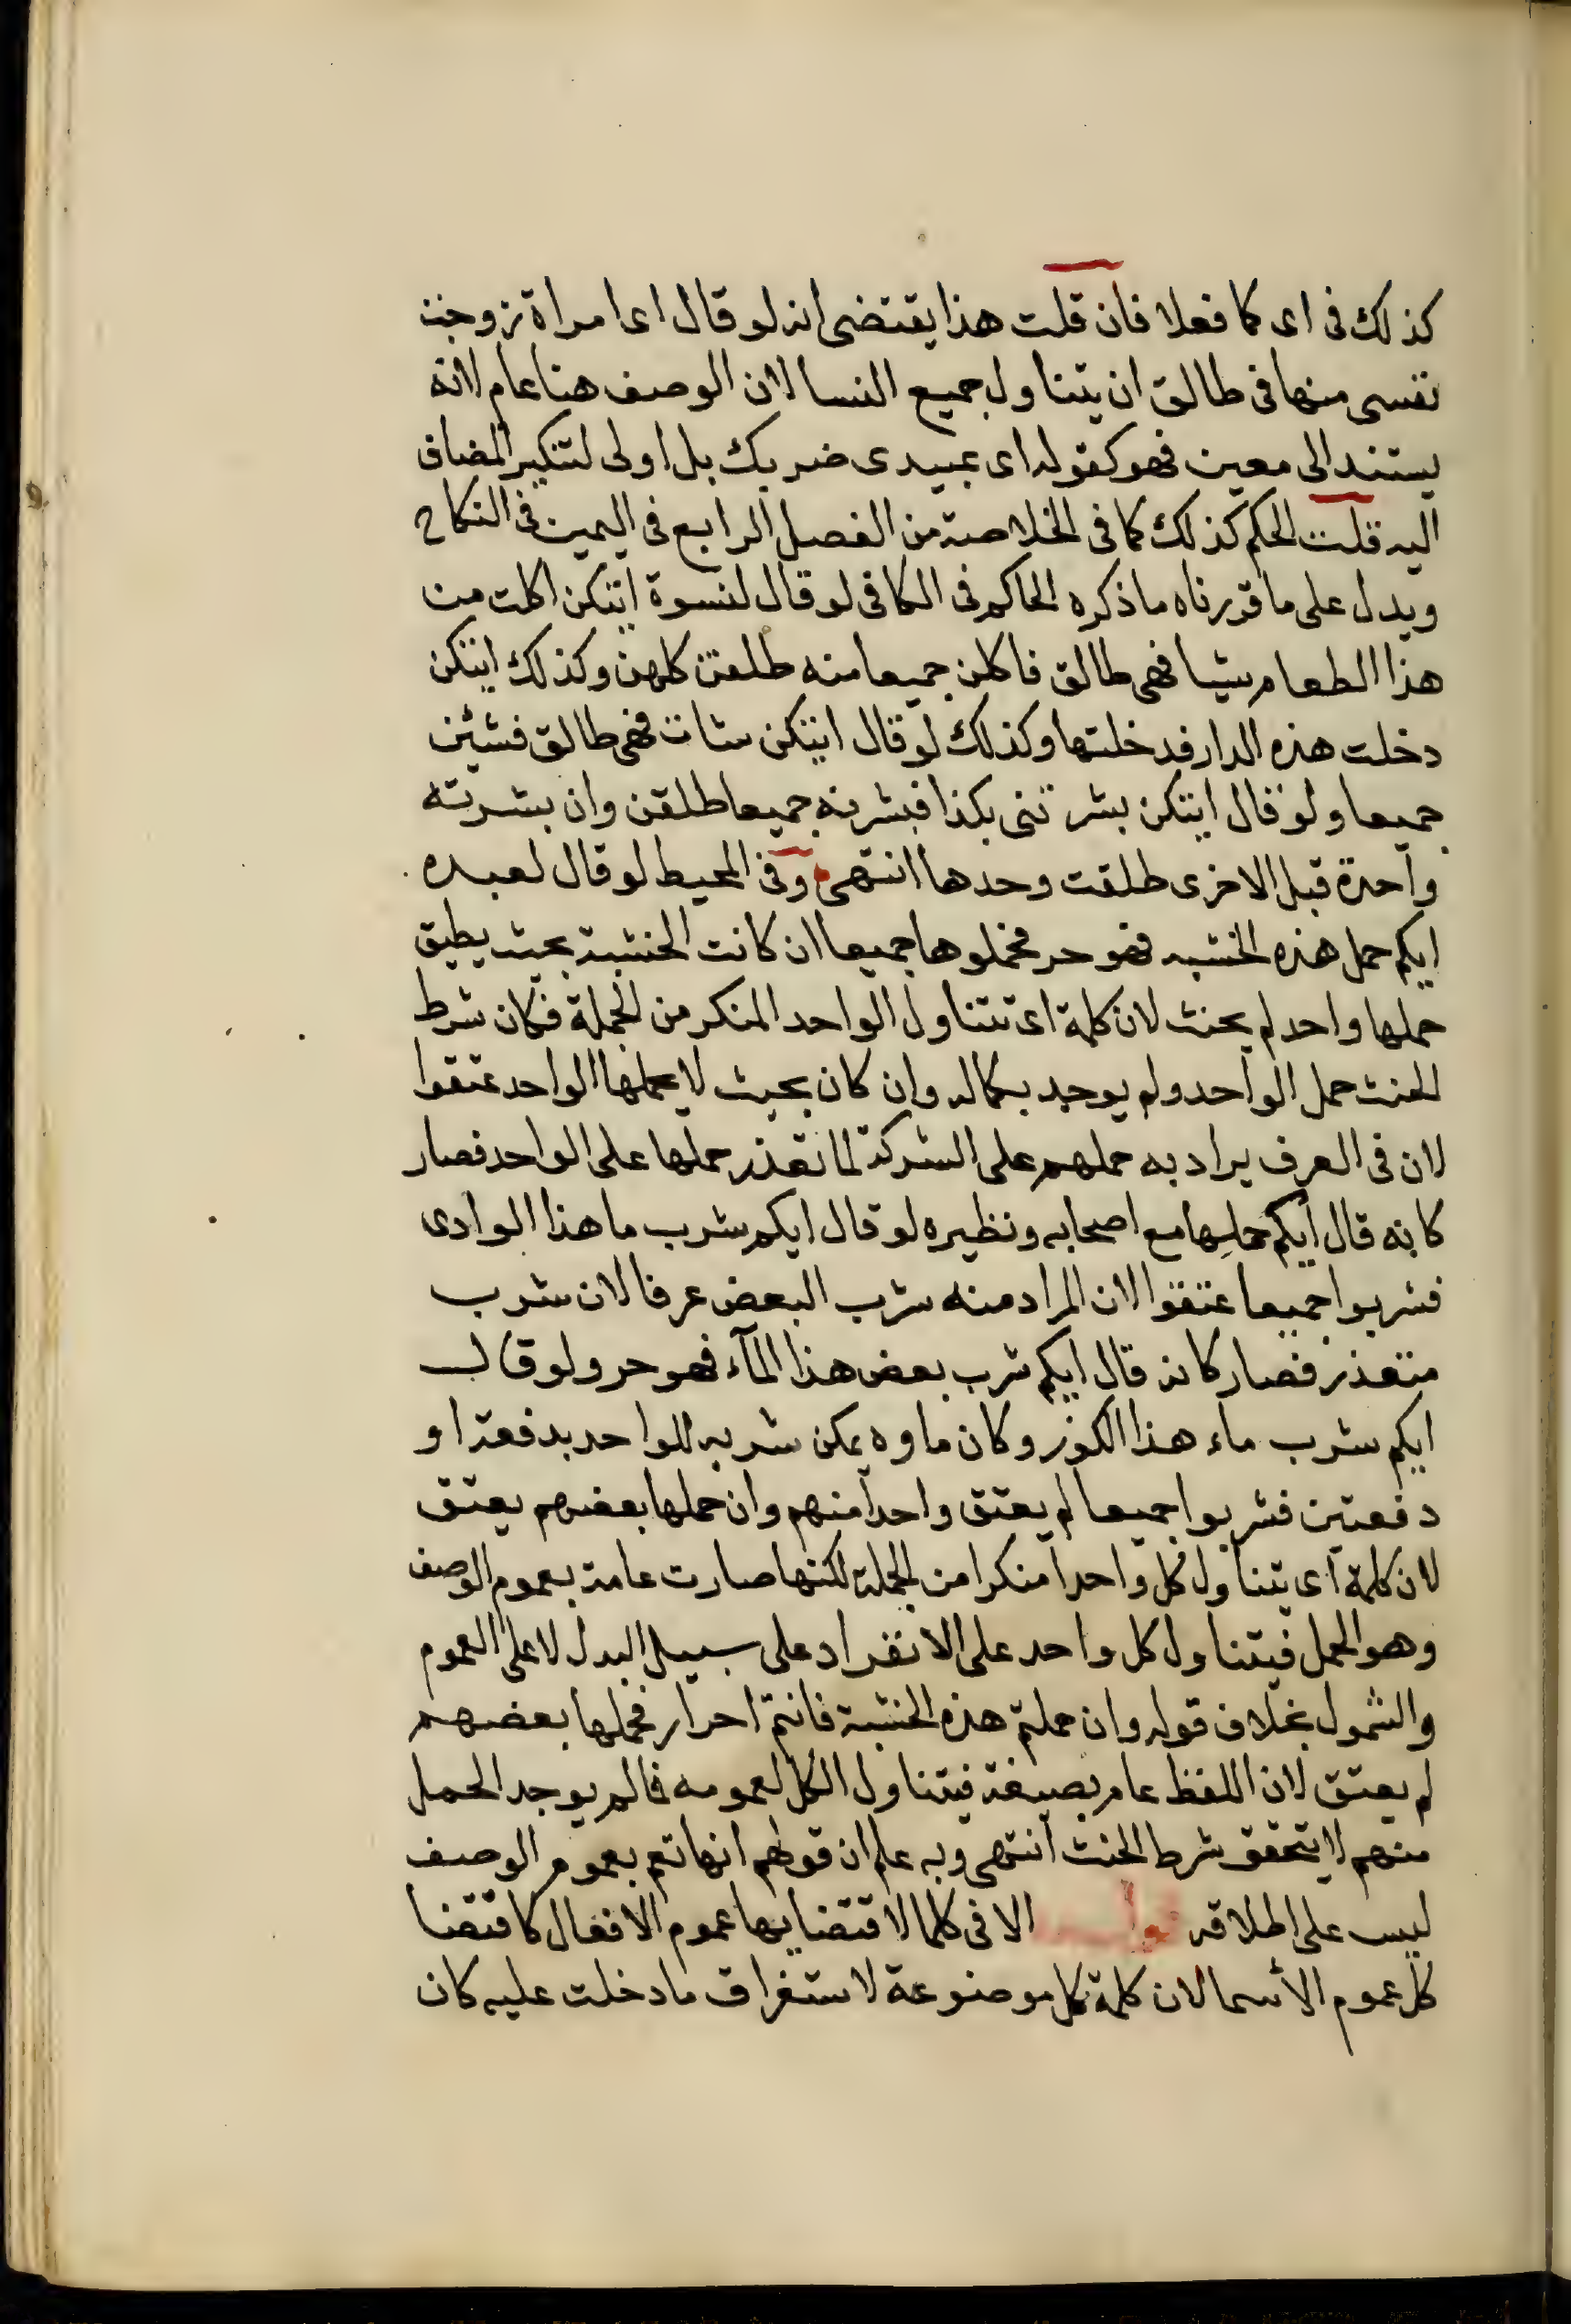 كذلك فى اى كما فعلا فان قلت هذا يقتضى انه لو قال اى امراة زوجت
نفسى منها فهى طالق ان يتناول جميع النسا لان الوصف هنا عام لانه
يستند الى معين فهو كقوله اى عبيدى ضربك بل اولى لتنكير المضاف
اليه قلت الحكم كذلك كما فى الخلاصة من الفصل الرابع فى اليمين فى النكاح
ويدل على ما قررناه ما ذكره الحاكم فى الكافى لو قال لنسوة ايتكن اكلت من
هذا الطعام شيا فهى طالق فاكلن جميعا منه طلقن كلهن وكذلك ايتكن
دخلت هذه الدار فدخلتها وكذلك لو قال ايتكن شات فهى طالق فشئن
جميعا ولو قال ايتكن بشرتنى بكذا فبشرنه جميعا طلقن وان بشرته
واحدة قبل الاخرى طلقت وحدها انتهى وفى المحيط لو قال لعبده
ايكم حمل هذه الخشبه فهو حر فحملوها جميعا ان كانت الخشبة بحيث يطيق
حملها واحد لم يحنث لان كلمة اى تتناول الواحد المنكر من الجملة فكان شرط
الحنث حمل الواحد ولم يوجد بكماله وان كان بحيث لا يحملها الواحد عتقوا
لان فى العرف يراد به حملهم على الشركة لما تعذر حملها على الواحد فصار
كانه قال ايكم حملها مع اصحابه ونظيره لو قال ايكم شرب ما هذا الوادى
فشربوا جميعا عتقوا لان المراد منه شرب البعض عرفا لان شرب
متعذر فصار كانه قال ايكم شرب بعض هذا المآء فهو حر ولو قال
ايكم شرب ماء هذا الكوز وكان ماوه يمكن شربه للواحد بدفعة او
دفعتين فشربوا جميعا لم يعتق واحدا منهم وان حملها بعضهم يعتق
لان كلمة اى يتناول كل واحدا منكرا من الجملة لكنها صارت عامة بعموم الوصف
وهو الحمل فيتناول كل واحد على الانفراد على سبيل البدل لا على العموم
والشمول بخلاف قوله وان حملتم هذه الخشبة فانتم احرار فحملها بعضهم
لم يعتق لان اللفظ عام بصيغة فيتناول الكل لعمومه فمالم يوجد الحمل
منهم لا يتحقق شرط الحنث انتهى وبه علم ان قولهم انها تعم بعموم الوصف
ليس على اطلاقه الا فى كلما لاقتضايها عموم الافعال كاقتضا
كل عموم الأسما لان كلمة كل موضوعة لاستغراق ما دخلت عليه كان